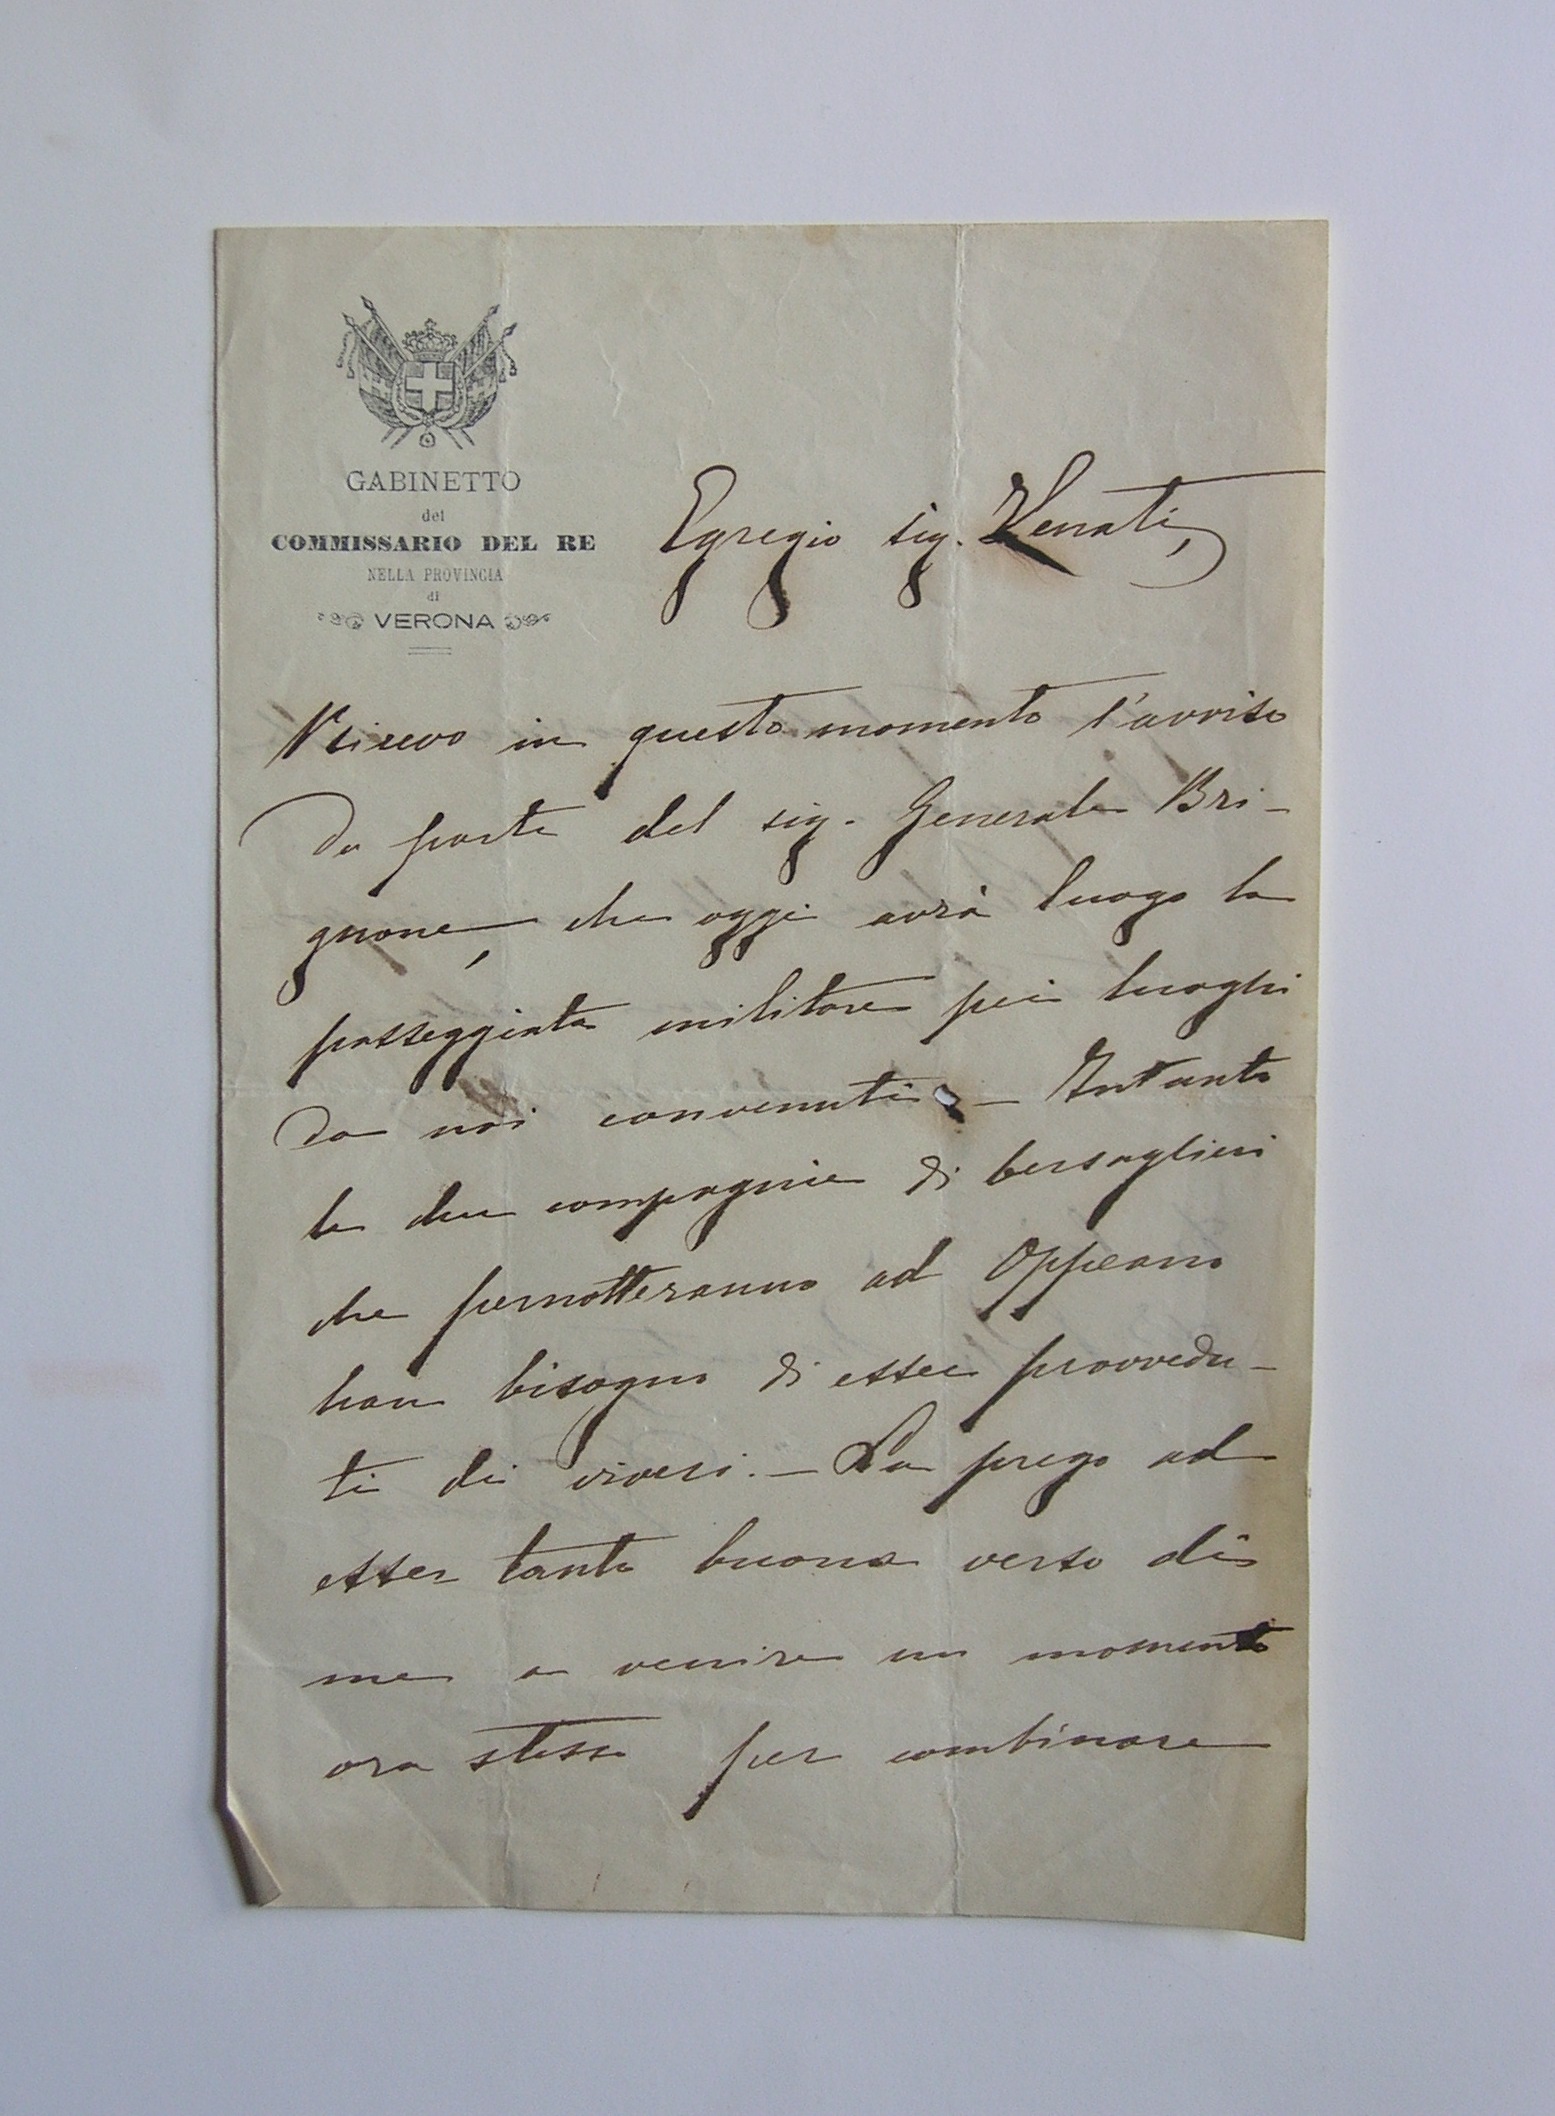 GABINETTO
del
COMMISSARIO DEL RE
NELLA PROVINCIA
di
VERONA
Egregio sig. Renati,
Ricevo in questo momento l'avviso
da parte del sig. Generale Bri-
gnone, che oggi avrà luogo la
passeggiata militare pei luoghi
da noi convenuti - Intanto
le due compagnie di bersaglieri
che pernotteranno ad Oppeano
han bisogno di esser provvedu-
ti di viveri. - La prego ad
esser tanto buono verso di
me a venire un momento
ora stesso per combinare